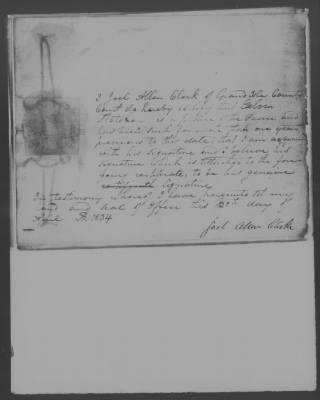 I Joel Allen Clerk of Grand Isle County
Court do hereby certify that Calvin
is a Justice of the Peace and
has been such for more than one year
previous to this date, that I am acquain
with his signature and I believe his
signature which is attached to the fore
going certificate, to be his genuine
signature
In testimony whereof I have hereunto set my
hand and seal of Office this 20th day of
April 1834
Joel Allen Clerk